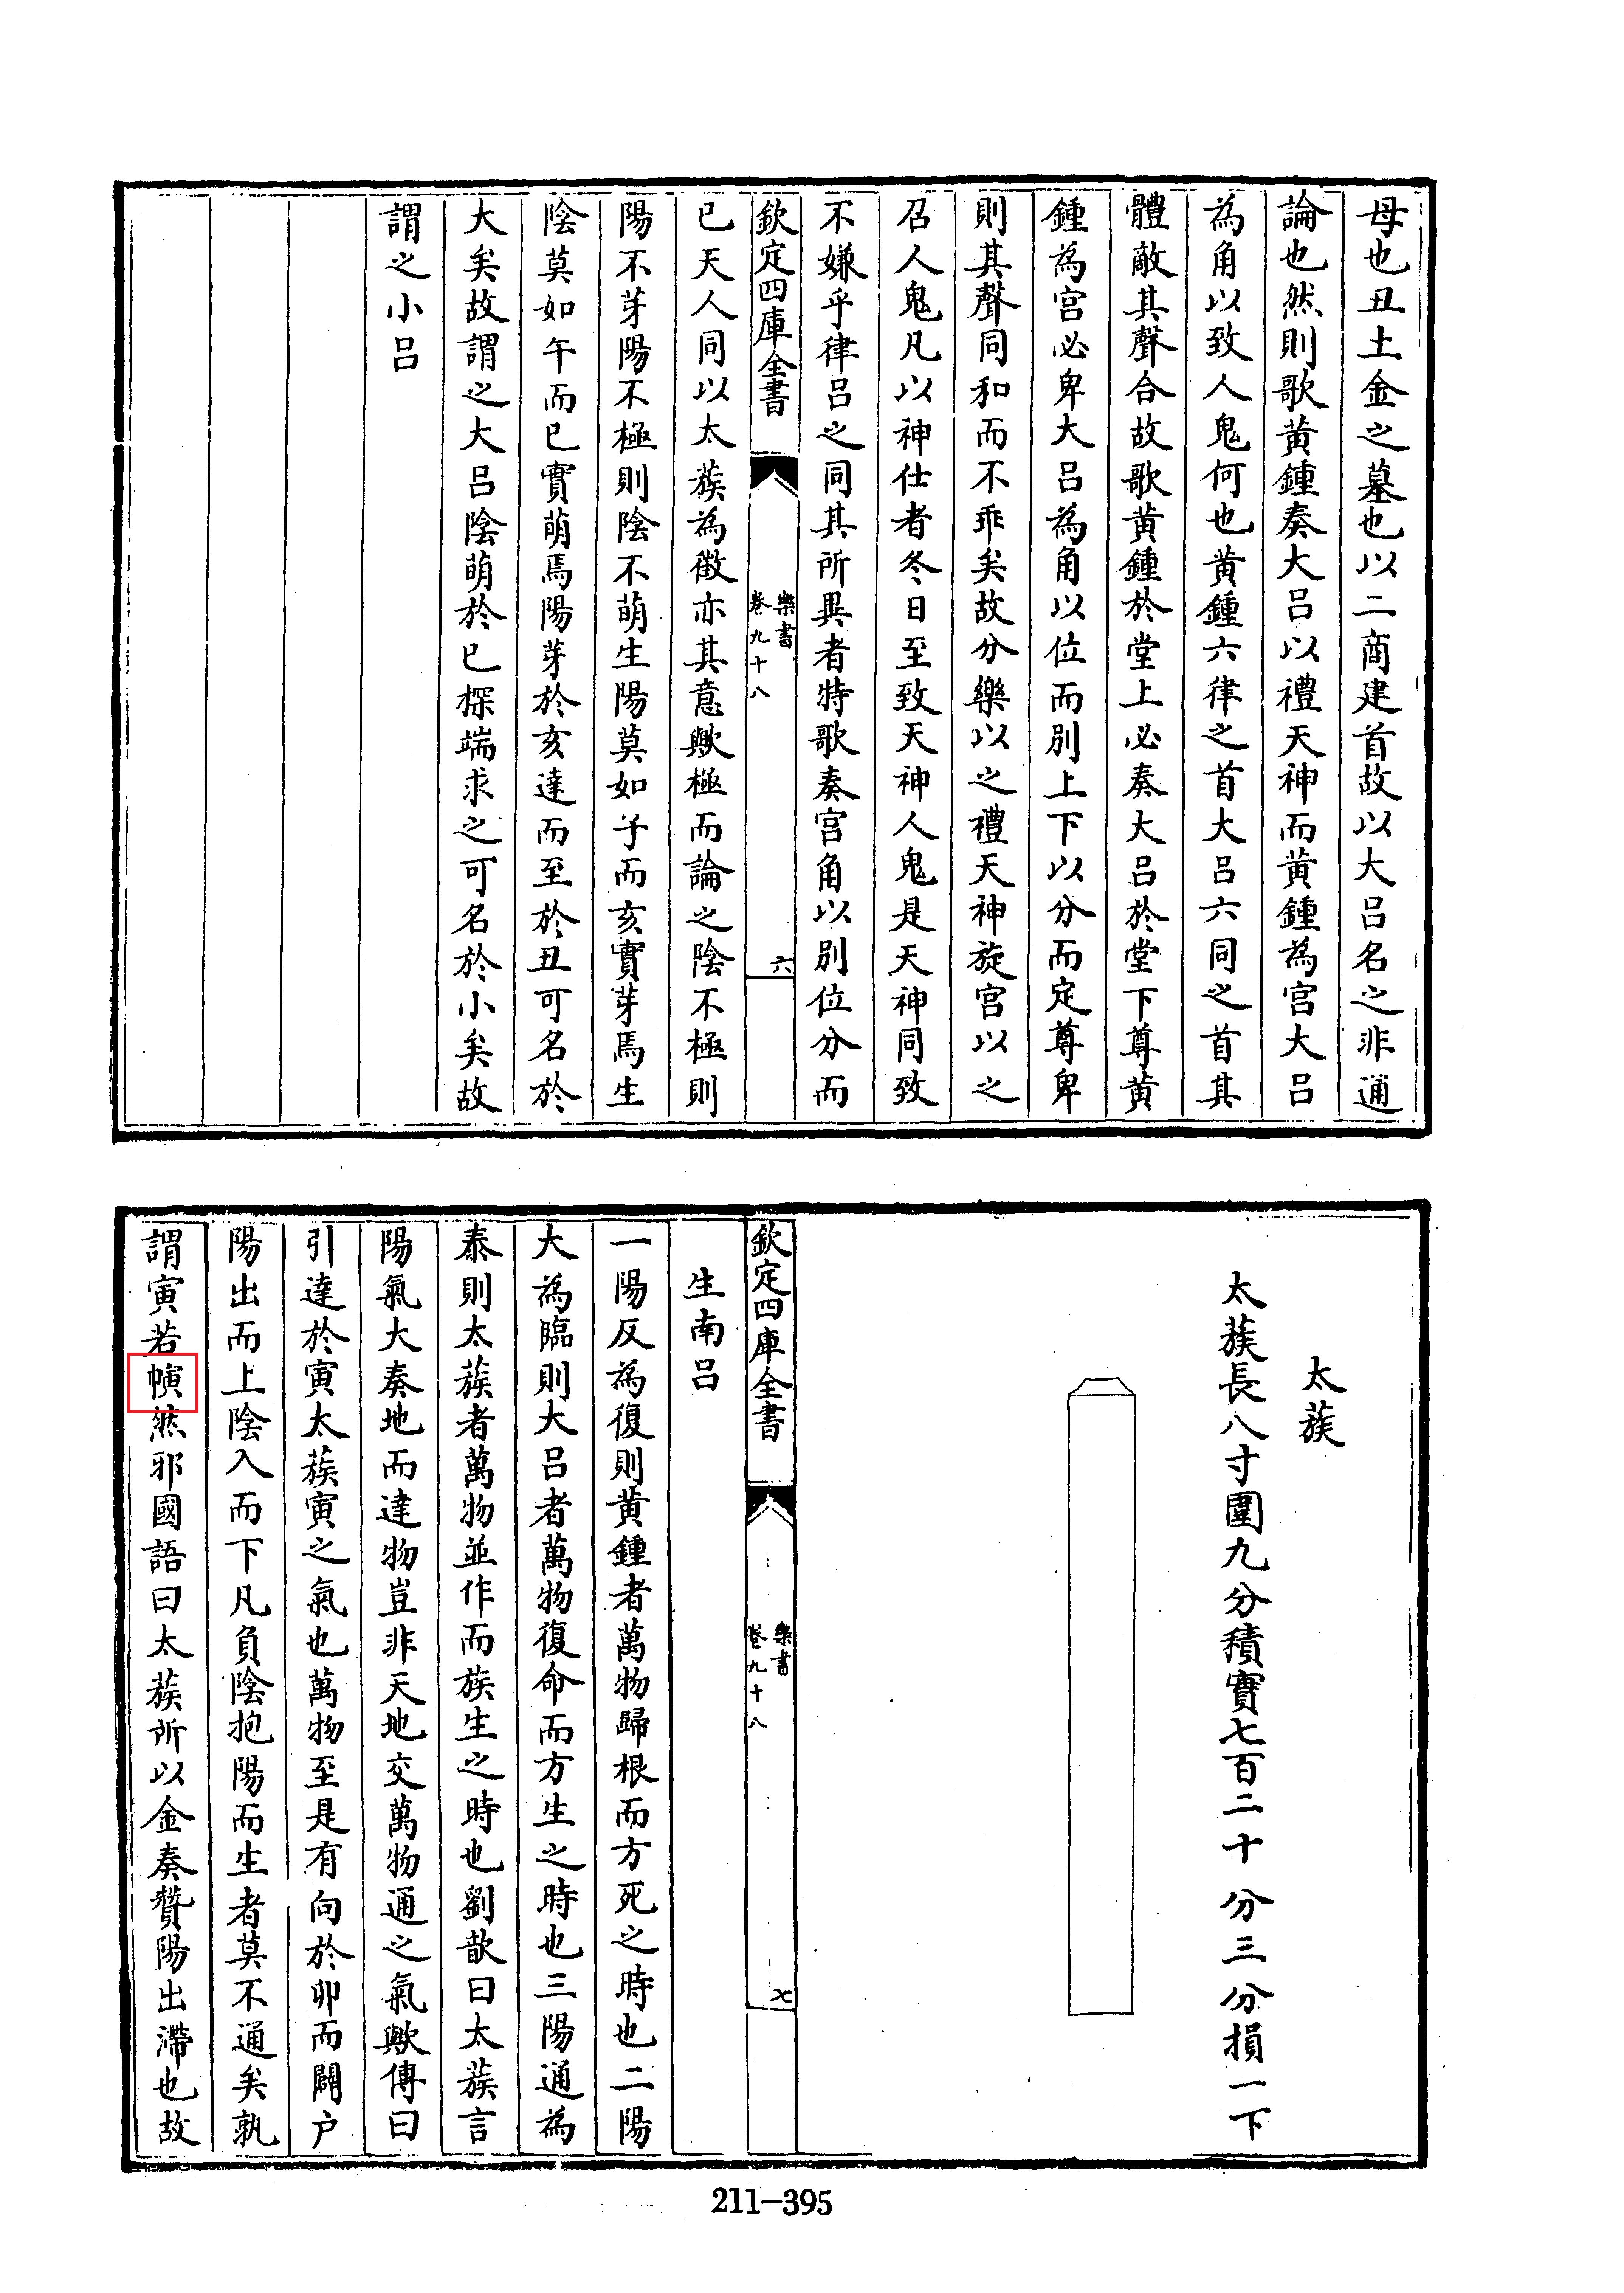 母也丑土金之墓也以二商建首故以大呂名之非通
論也然則歌黄鍾奏大呂以禮天神而黄鍾為宫大呂
為角以致人鬼何也黄鍾六律之首大呂六同之首其
體敵其聲合故歌黄鍾於堂上必奏大呂於堂下尊黄
鍾為宫必卑大呂為角以位而别上下以分而定尊卑
則其聲同和而不乖矣故分樂以之禮天神旋宫以之
召人鬼凡以神仕者冬日至致天神人鬼是天神同致
不嫌乎律呂之同其所異者特歌奏宫角以别位分而
欽定四庫全書
樂書
卷九十八
六
已天人同以太蔟為徵亦其意歟極而論之陰不極則
陽不芽陽不極則陰不萌生陽莫如子而亥實芽焉生
陰莫如午而巳實萌焉陽芽於亥達而至於丑可名於
大矣故謂之大呂陰萌於巳探端求之可名於小矣故
謂之小呂
太蔟
太蔟長八寸圍九分積實七百二十分三分損一下
欽定四庫全書
樂書
卷九十八
七
生南呂
一陽反為復則黄鍾者萬物歸根而方死之時也二陽
大為臨則大呂者萬物復命而方生之時也三陽通為
泰則太蔟者萬物並作而族生之時也劉歆曰太蔟言
陽氣大奏地而達物豈非天地交萬物通之氣歟傳曰
引達於寅太蔟寅之氣也萬物至是有向於卯而闢户
陽出而上陰入而下凡負陰抱陽而生者莫不通矣孰
謂寅若然邪國語曰太蔟所以金奏贊陽出滯也故
211-395